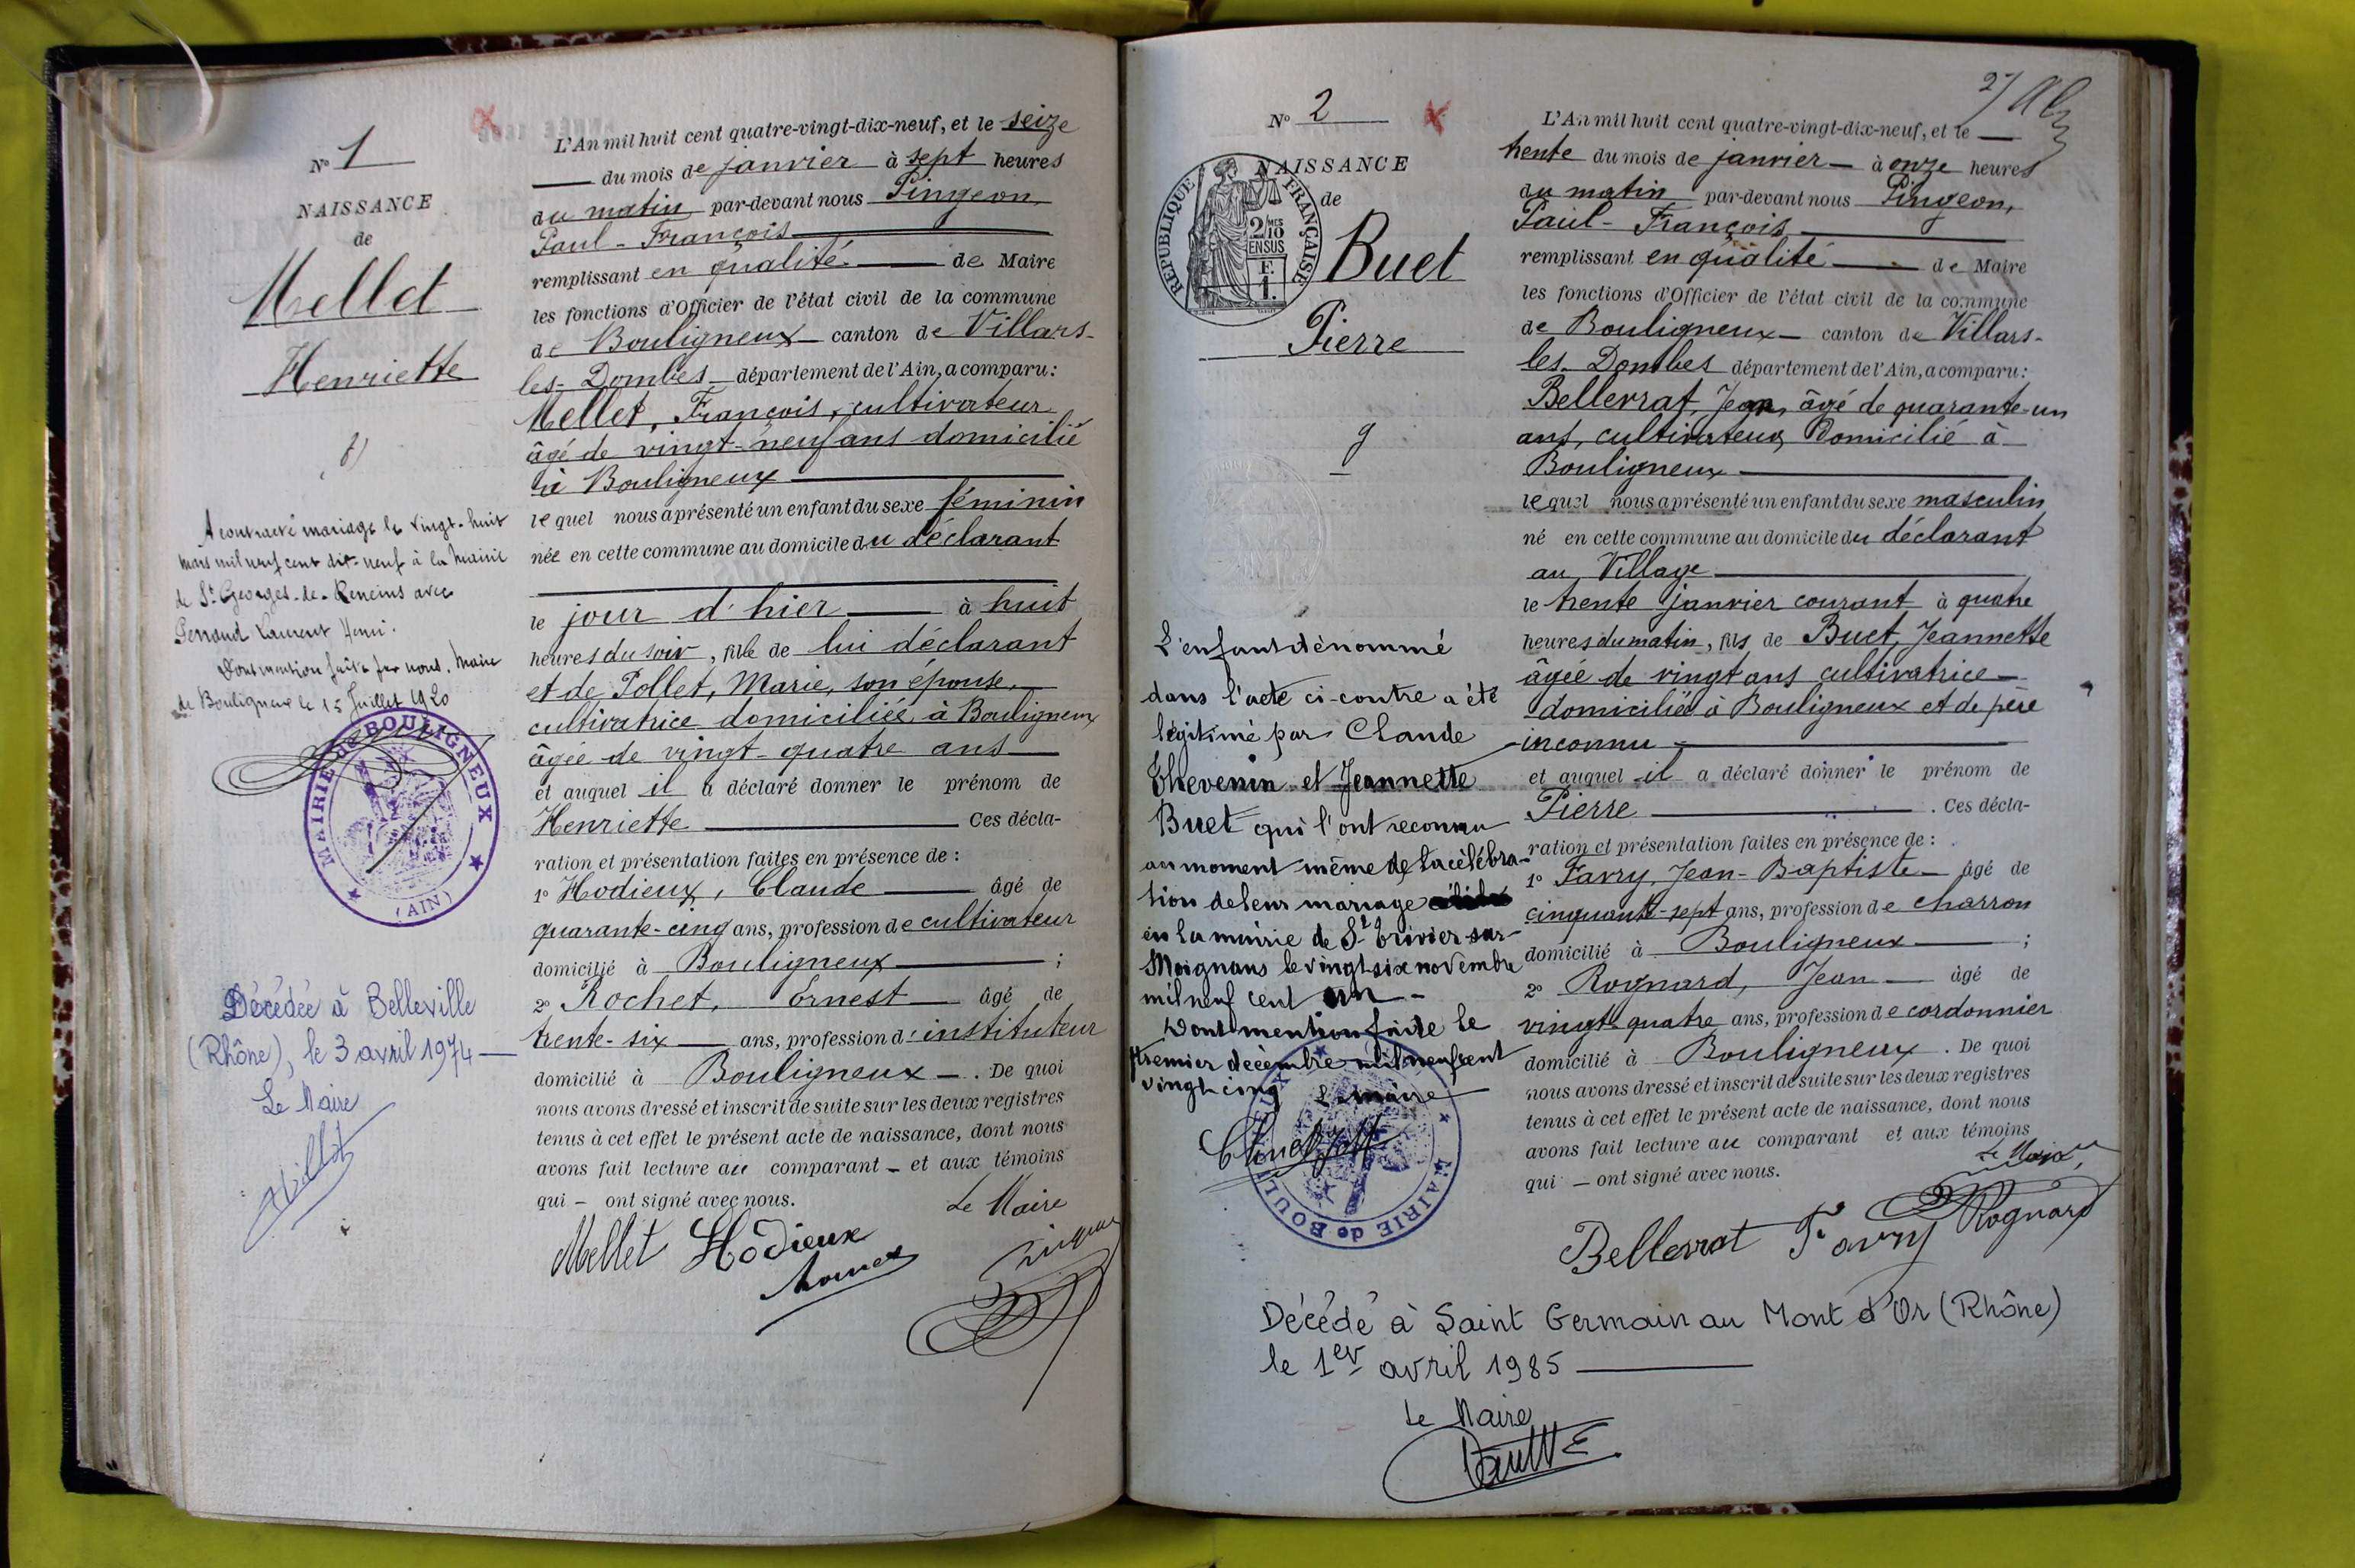 N° 1
NAISSANCE
de
Mellet
Henriette
A contracté mariage le vingt-huit
mars mil neuf cent dix-neuf à la mairie
de St Georges-de-Reneins avec
Perroud Laurent Henri.
Dont mention faite par nous, Maire
de Bouligneux le 15 Juillet 1920
MAIRIE de BOULIGNEUX
(AIN)
Décédée à Belleville
(Rhône), le 3 avril 1974
Le Maire
L'An mil huit cent quatre-vingt-dix-neuf, et le seize
du mois de janvier à sept heures
du matin par-devant nous Pingeon,
Paul-François
remplissant en qualité de Maire
les fonctions d'Officier de l'état civil de la commune
de Bouligneux canton de Villars-
les-Dombes département de l'Ain, a comparu:
Mellet, François, cultivateur
âgé de vingt-neuf ans domicilié
à Bouligneux
lequel nous a présenté un enfant du sexe féminin
née en cette commune au domicile du déclarant
le jour d'hier à huit
heures du soir, fille de lui déclarant
et de Pollet, Marie, son épouse,
cultivatrice domiciliée à Bouligneux
âgée de vingt-quatre ans
et auquel il a déclaré donner le prénom de
Henriette Ces décla-
ration et présentation faites en présence de :
1° Hodieux, Claude âgé de
quarante-cinq ans, profession de cultivateur
domicilié à Bouligneux ;
2° Rochet, Ernest âgé de
trente-six ans, profession d'instituteur
domicilié à Bouligneux. De quoi
nous avons dressé et inscrit de suite sur les deux registres
tenus à cet effet le présent acte de naissance, dont nous
avons fait lecture au comparant et aux témoins
qui ont signé avec nous.
Le Maire
Mellet Hodieux
N° 2
NAISSANCE
de
REPUBLIQUE FRANÇAISE
2 MES
10
EN SUS
Buet
Pierre
L'enfant dénommé
dans l'acte ci-contre a été
légitimé par Claude
Thevenin et Jeannette
Buet qui l'ont reconnu
au moment même de la célébra-
tion de leur mariage
en la mairie de St Trivier-sur-
Moignans le vingt-six novembre
mil neuf cent un
Dont mention faite le
premier décembre mil neuf cent
vingt-cinq Le maire
MAIRIE de BOULIGNEUX
L'An mil huit cent quatre-vingt-dix-neuf, et le
trente du mois de janvier à onze heures
du matin par-devant nous Pingeon,
Paul-François
remplissant en qualité de Maire
les fonctions d'Officier de l'état civil de la commune
de Bouligneux canton de Villars-
les-Dombes département de l'Ain, a comparu:
Bellevrat, Jean, âgé de quarante-un
ans, cultivateur, domicilié à
Bouligneux
lequel nous a présenté un enfant du sexe masculin
né en cette commune au domicile du déclarant
au Village
le trente janvier courant à quatre
heures du matin, fils de Buet, Jeannette
âgée de vingt ans cultivatrice
domiciliée à Bouligneux et de père
inconnu
et auquel il a déclaré donner le prénom de
Pierre. Ces décla-
ration et présentation faites en présence de :
1° Favry, Jean-Baptiste âgé de
cinquante-sept ans, profession de charron
domicilié à Bouligneux ;
2° Rognard, Jean âgé de
vingt-quatre ans, profession de cordonnier
domicilié à Bouligneux. De quoi
nous avons dressé et inscrit de suite sur les deux registres
tenus à cet effet le présent acte de naissance, dont nous
avons fait lecture au comparant et aux témoins
qui ont signé avec nous.
Le Maire,
Bellevrat Favry Rognard
Décédé à Saint Germain au Mont d'Or (Rhône)
le 1er avril 1985
Le Maire